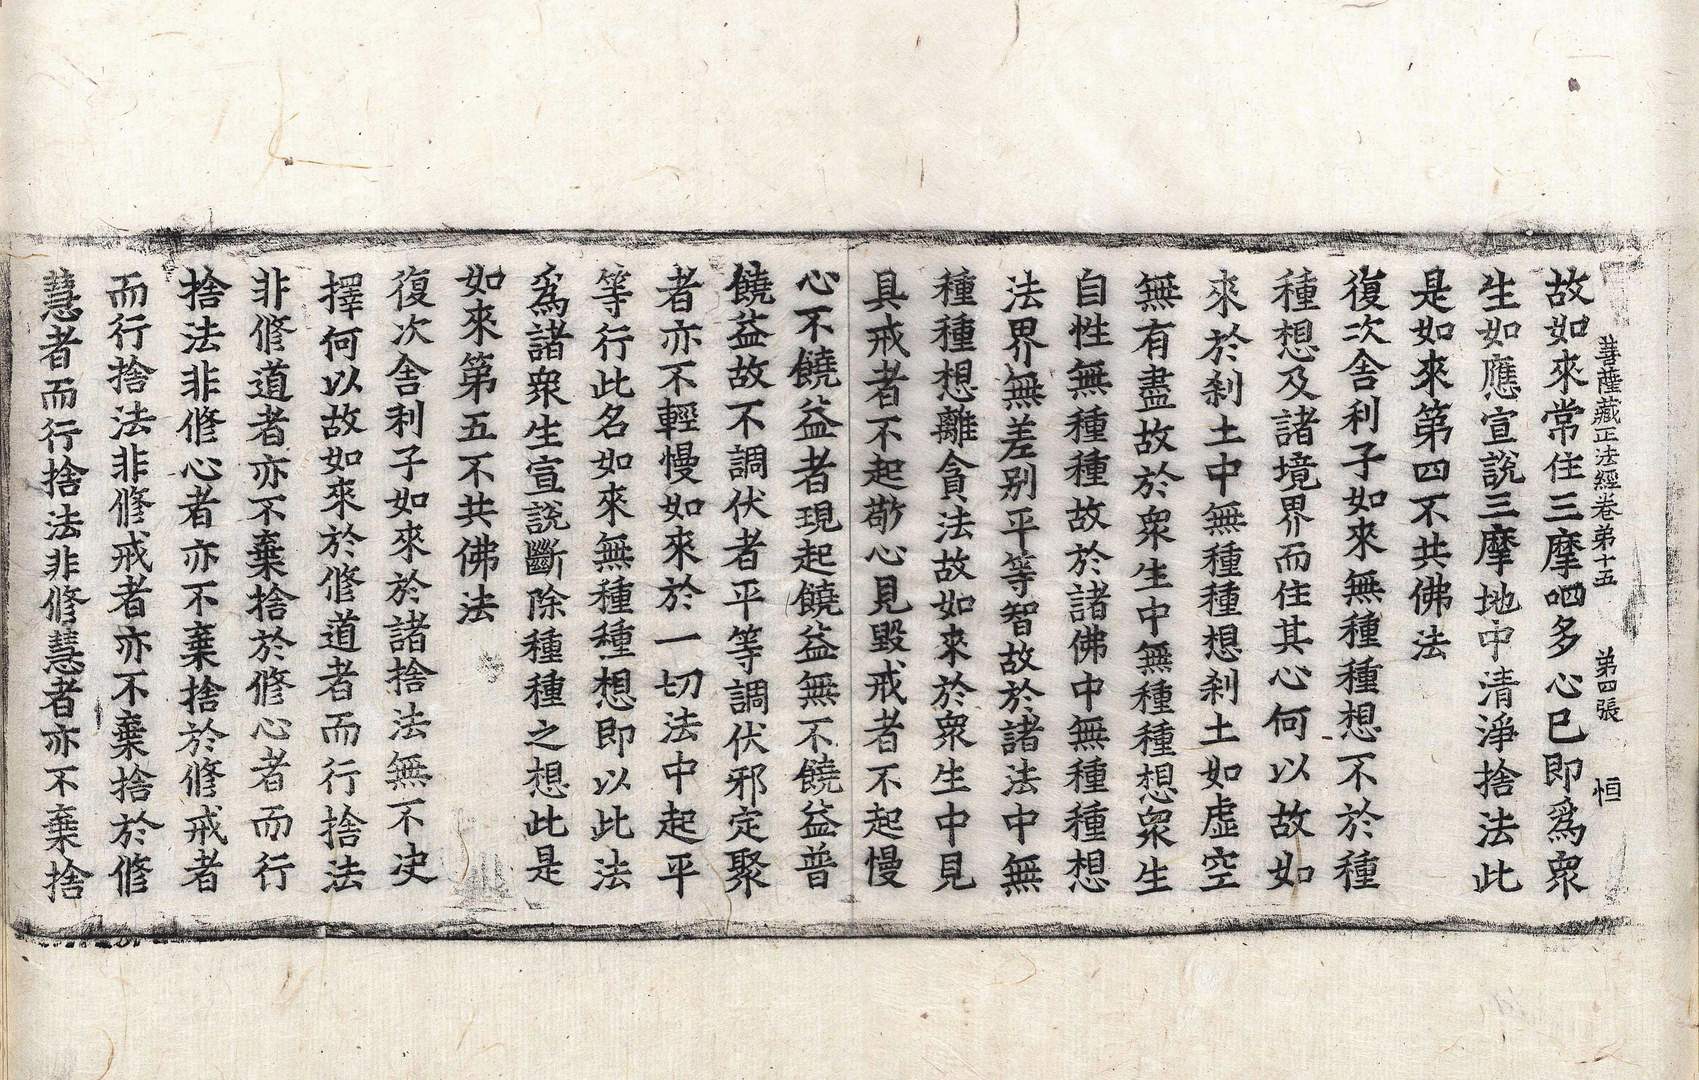 菩薩藏正法經卷弟十五 第四張 恒
故如來常住三摩呬多心已即爲衆
生如應宣說三摩地中清淨捨法此
是如來第四不共佛法
復次舍利子如來無種種想不於種
種想及諸境界而住其心何以故如
來於刹土中無種種想刹土如虛空
無有盡故於衆生中無種種想衆生
自性無種種故於諸佛中無種種想
法界無差别平等智故於諸法中無
種種想離貪法故如來於衆生中見
具戒者不起敬心見毀戒者不起慢
心不饒益者現起饒益無不饒益普
饒益故不調伏者平等調伏邪定聚
者亦不輕慢如來於一切法中起平
等行此名如來無種種想即以此法
爲諸衆生宣說斷除種種之想此是
如來第五不共佛法
復次舍利子如來於諸捨法無不决
擇何以故如來於修道者而行捨法
非修道者亦不棄捨於修心者而行
捨法非修心者亦不棄捨於修戒者
而行捨法非修戒者亦不棄捨於修
慧者而行捨法非修慧者亦不棄捨